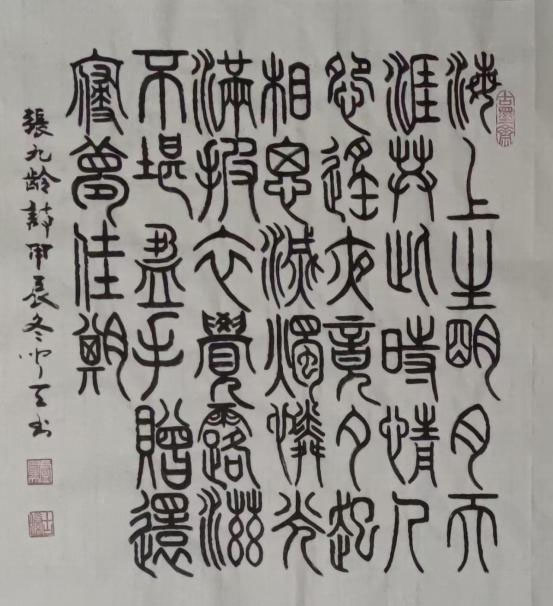 海上生明月天
涯共此時情人
怨遙夜竟夕起
相思滅燭憐光
滿披衣覺露滋
不堪盈手贈還
寢夢佳期
張九齡詩甲辰冬书
古墨齋